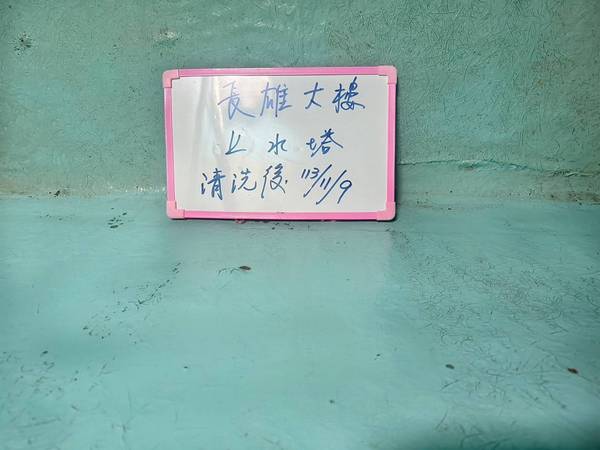 長雄大樓
上水塔
清洗後 113/11/9